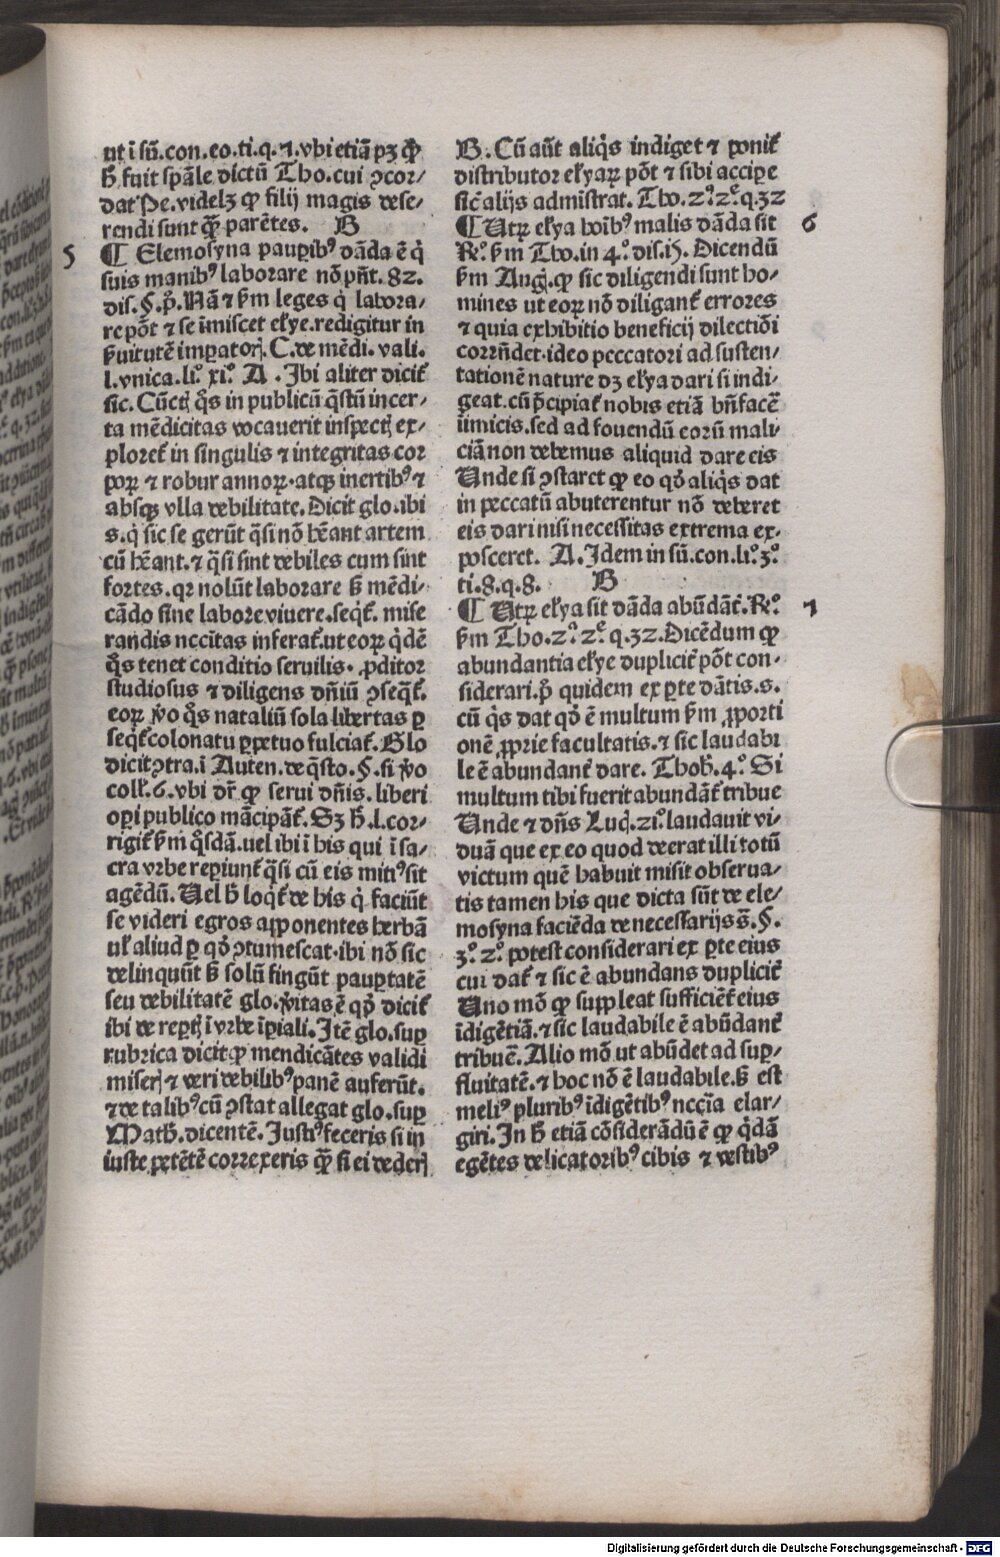 ut ī sū.con.eo.ti.q.7.vbi etiā pꝫ ꝙ
h̄ fuit spāle dictū Tho.cui ꝯcor/
dat Pe.videlꝫ ꝙ filij magis dese/
rendi sunt q̄ꝫ parētes. B
5
¶ Elemosyna pauꝑibꝰ dāda ē q̇
suis manibꝰ laborare nō pn̄t. 82.
dis.§.p̄.Nā ⁊ ẜm leges q̇ labora/
re pōt ⁊ se īmiscet elẏe.redigitur in
ẜuitutē impatorꝭ.C.de mēdi.vali.
l.vnica.li.º xi.º A . Ibi aliter dicit̄
sic. Cūctꝭ q̇s in publicū q̄stū incer/
ta mēdicitas vocauerit inspectꝭ ex/
ploret̄ in singulis ⁊ integritas cor
poꝝ ⁊ robur annoꝝ.atqꝫ inertibꝰ ⁊
absqꝫ vlla debilitate. Dicit glo.ibi
s.q̇ sic se gerūt q̄si nō hēant artem
cū hēant.⁊ q̄si sint debiles cum sint
fortes.qꝛ nolūt laborare ꝫ mēdi/
cādo sine labore viuere.seqt̄. mise
randis nccītas inferat̄.ut eoꝝ q̇dē
q̇s tenet conditio seruilis. ꝓditor
studiosus ⁊ diligens dn̄iū ꝯseqt̄.
eoꝝ ꝟo q̇s nataliū sola libertas ꝑ
seqt̄ colonatu ꝑpetuo fulciat̄. Glo
dicit ꝯtra.ī Auten.de q̄sto.§.si ꝟo
coll̄.6.vbi dr̄ ꝙ serui dn̄is.liberi
oꝑi publico mācipāt̄. Sꝫ h̄.l.cor/
rigit̄ ẜm q̇sdā.uel ibi ī his qui ī sa/
cra vrbe reꝑiunt̄ q̄si cū eis mitiꝰ sit
agēdū. Uel h̄ loqt̄ de his q̇ faciūt
se videri egros apponentes herbā
ul̄ aliud ꝑ qd̄ ꝯtumescat.ibi nō sic
delinquūt ꝫ solū fingūt pauꝑtatē
seu debilitatē glo.ꝟitas ē qd̄ dicit̄
ibi de reꝑtꝭ ī vrbe īꝑiali. Itē glo.suꝑ
rubrica dicit ꝙ mendicātes validi
miserꝭ ⁊ veri debilibꝰ panē auferūt.
⁊ de talibꝰ cū ꝯstat allegat glo.suꝑ
Math̄.dicentē. Iustiꝰ feceris si in
iuste petētē correxeris q̄ꝫ si ei dederꝭ
B. Cū aūt aliq̇s indiget ⁊ ponit̄
distributor elẏaꝝ pōt ⁊ sibi accipe
sic̄ alijs admīstrat. Tho. 2.ª 2.ᵉ q.32
6
¶ Utꝝ elẏa hōībꝰ malis dāda sit
R̄.º ẜm Tho.in 4.º dis.15. Dicendū
ẜm Auḡ.ꝙ sic diligendi sunt ho/
mines ut eoꝝ nō diligant̄ errores
⁊ quia exhibitio beneficij dilectiōi
corrn̄det.ideo peccatori ad susten/
tationē nature dꝫ elẏa dari si indi/
geat.cū p̄cipiat̄ nobis etiā bn̄facē
iimicis.sed ad fouendū eorū mali/
ciā non debemus aliquid dare eis
Unde si ꝯstaret ꝙ eo qd̄ aliq̇s dat
in peccatū abuterentur nō deberet
eis dari nisi necessitas extrema ex/
posceret. A. Idem in sū.con.li.º 3.º
ti.8.q.8. B
7
¶ Utꝝ elẏa sit dāda abūdāt̄. R̄.º
ẜm Tho. 2.ª 2.ᵉ q.32. Dicēdum ꝙ
abundantia elẏe duplicit̄ pōt con/
siderari.p̄ quidem ex ꝑte dātis.s.
cū q̇s dat qd̄ ē multum ẜm ꝓporti
onē ꝓprie facultatis.⁊ sic laudabi
le ē abundant̄ dare. Thob̄.4.º Si
multum tibi fuerit abundāt̄ tribue
Unde ⁊ dn̄s Luc̄.21.º laudauit vi/
duā que ex eo quod deerat illi totū
victum quē habuit misit obserua/
tis tamen his que dicta sūt de ele/
mosyna faciēda de necessarijs s̄.§.
3.º 2.º potest considerari ex ꝑte eius
cui dat̄ ⁊ sic ē abundans duplicit̄
Uno mō ꝙ suppleat sufficiēt̄ eius
īdigētiā.⁊ sic laudabile ē abūdant̄
tribuē. Alio mō ut abūdet ad suꝑ/
fluitatē.⁊ hoc nō ē laudabile.ꝫ est
meliꝰ pluribꝰ īdigētibꝰ nccīa elar/
giri. In h̄ etiā cōsiderādū ē ꝙ q̇dā
egētes delicatoribꝰ cibis ⁊ vestibꝰ
Digitalisierung gefördert durch die Deutsche Forschungsgemeinschaft - DFG